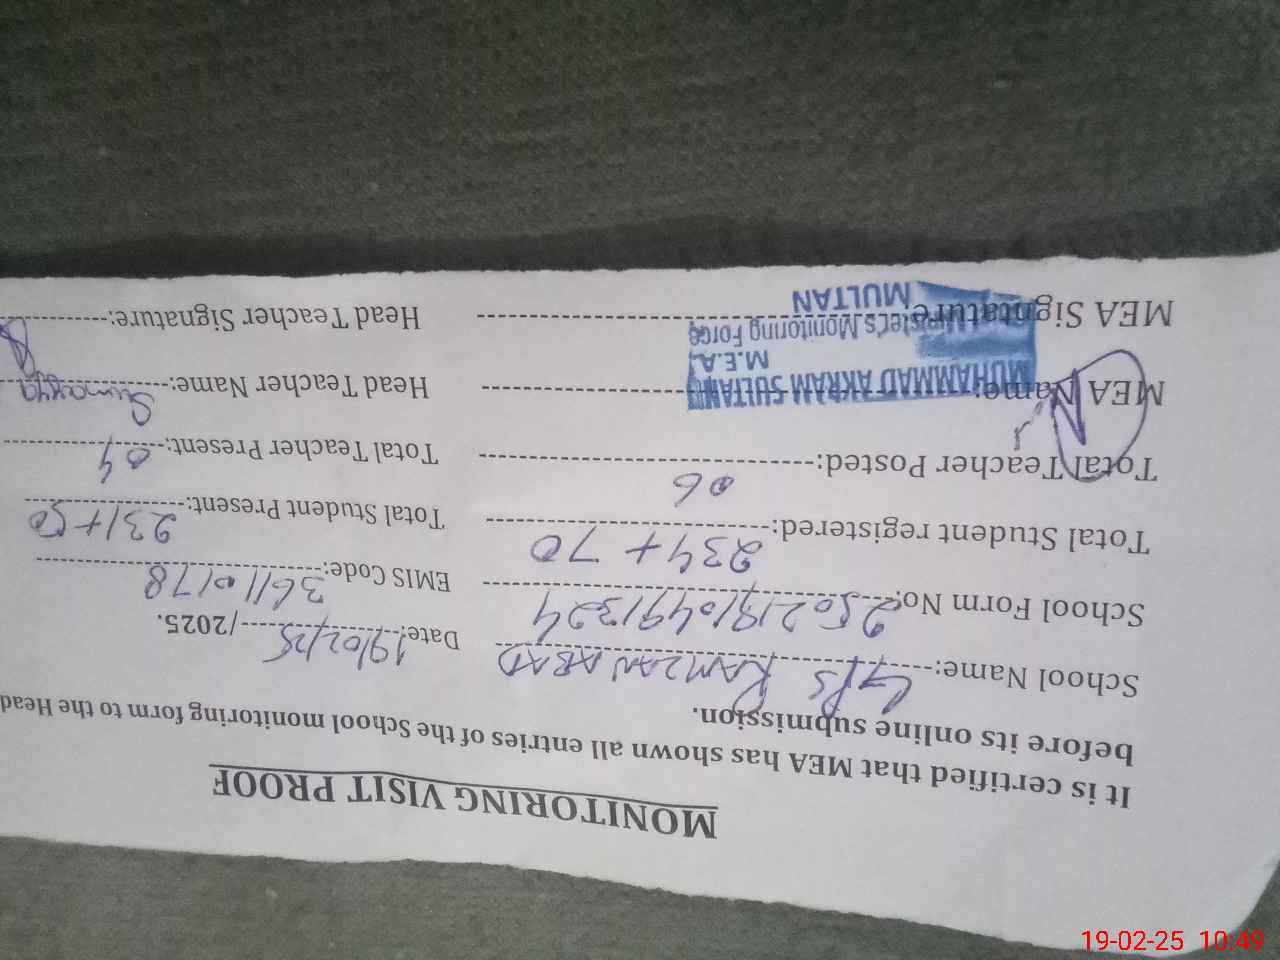 MONITORING VISIT PROOF
It is certified that MEA has shown all entries of the School monitoring form to the Head
before its online submission.
School Name: G/PS RAMZAN ABAD Date: 19/02/25 /2025.
School Form No: 250219104971324 EMIS Code: 36110178
Total Student registered: 234 + 70 Total Student Present: 231 + 50
Total Teacher Posted: 06 Total Teacher Present: 04
MEA Name: MUHAMMAD AKRAM SULTANI Head Teacher Name: Sumayya
M.E.A.
Minister's Monitoring Force
MEA Signature Head Teacher Signature:
MULTAN
19-02-25 10:49